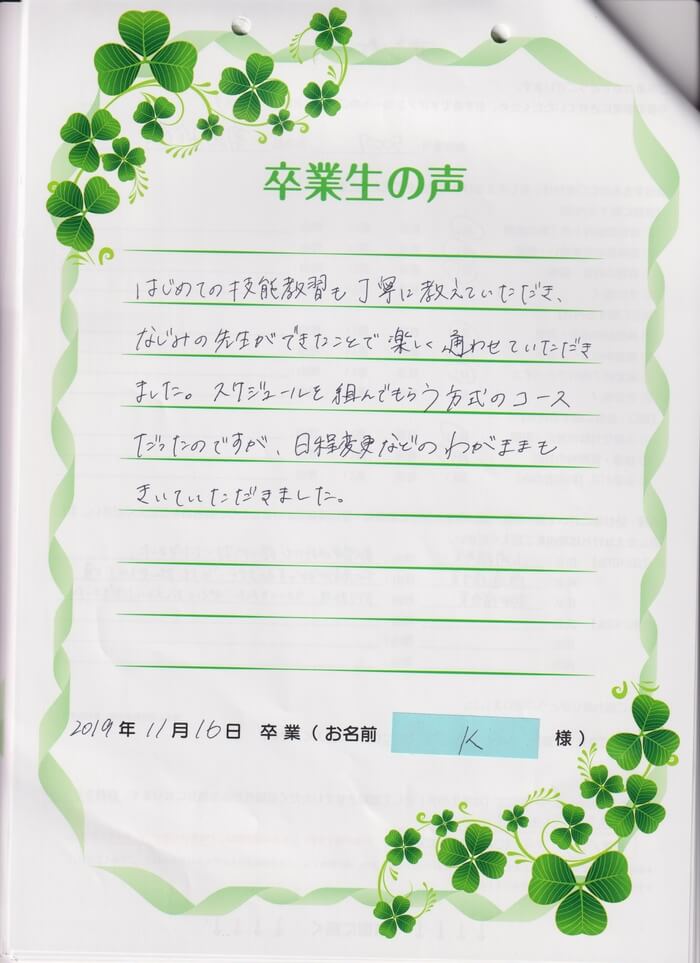 卒業生の声
はじめての技能教習も丁寧に教えていただき、
なじみの先生ができたことで楽しく通わせていただき
ました。スケジュールを組んでもらう方式のコース
だったのですが、日程変更などのわがままも
きいていただきました。
2019年11月16日 卒業(お名前 K 様)